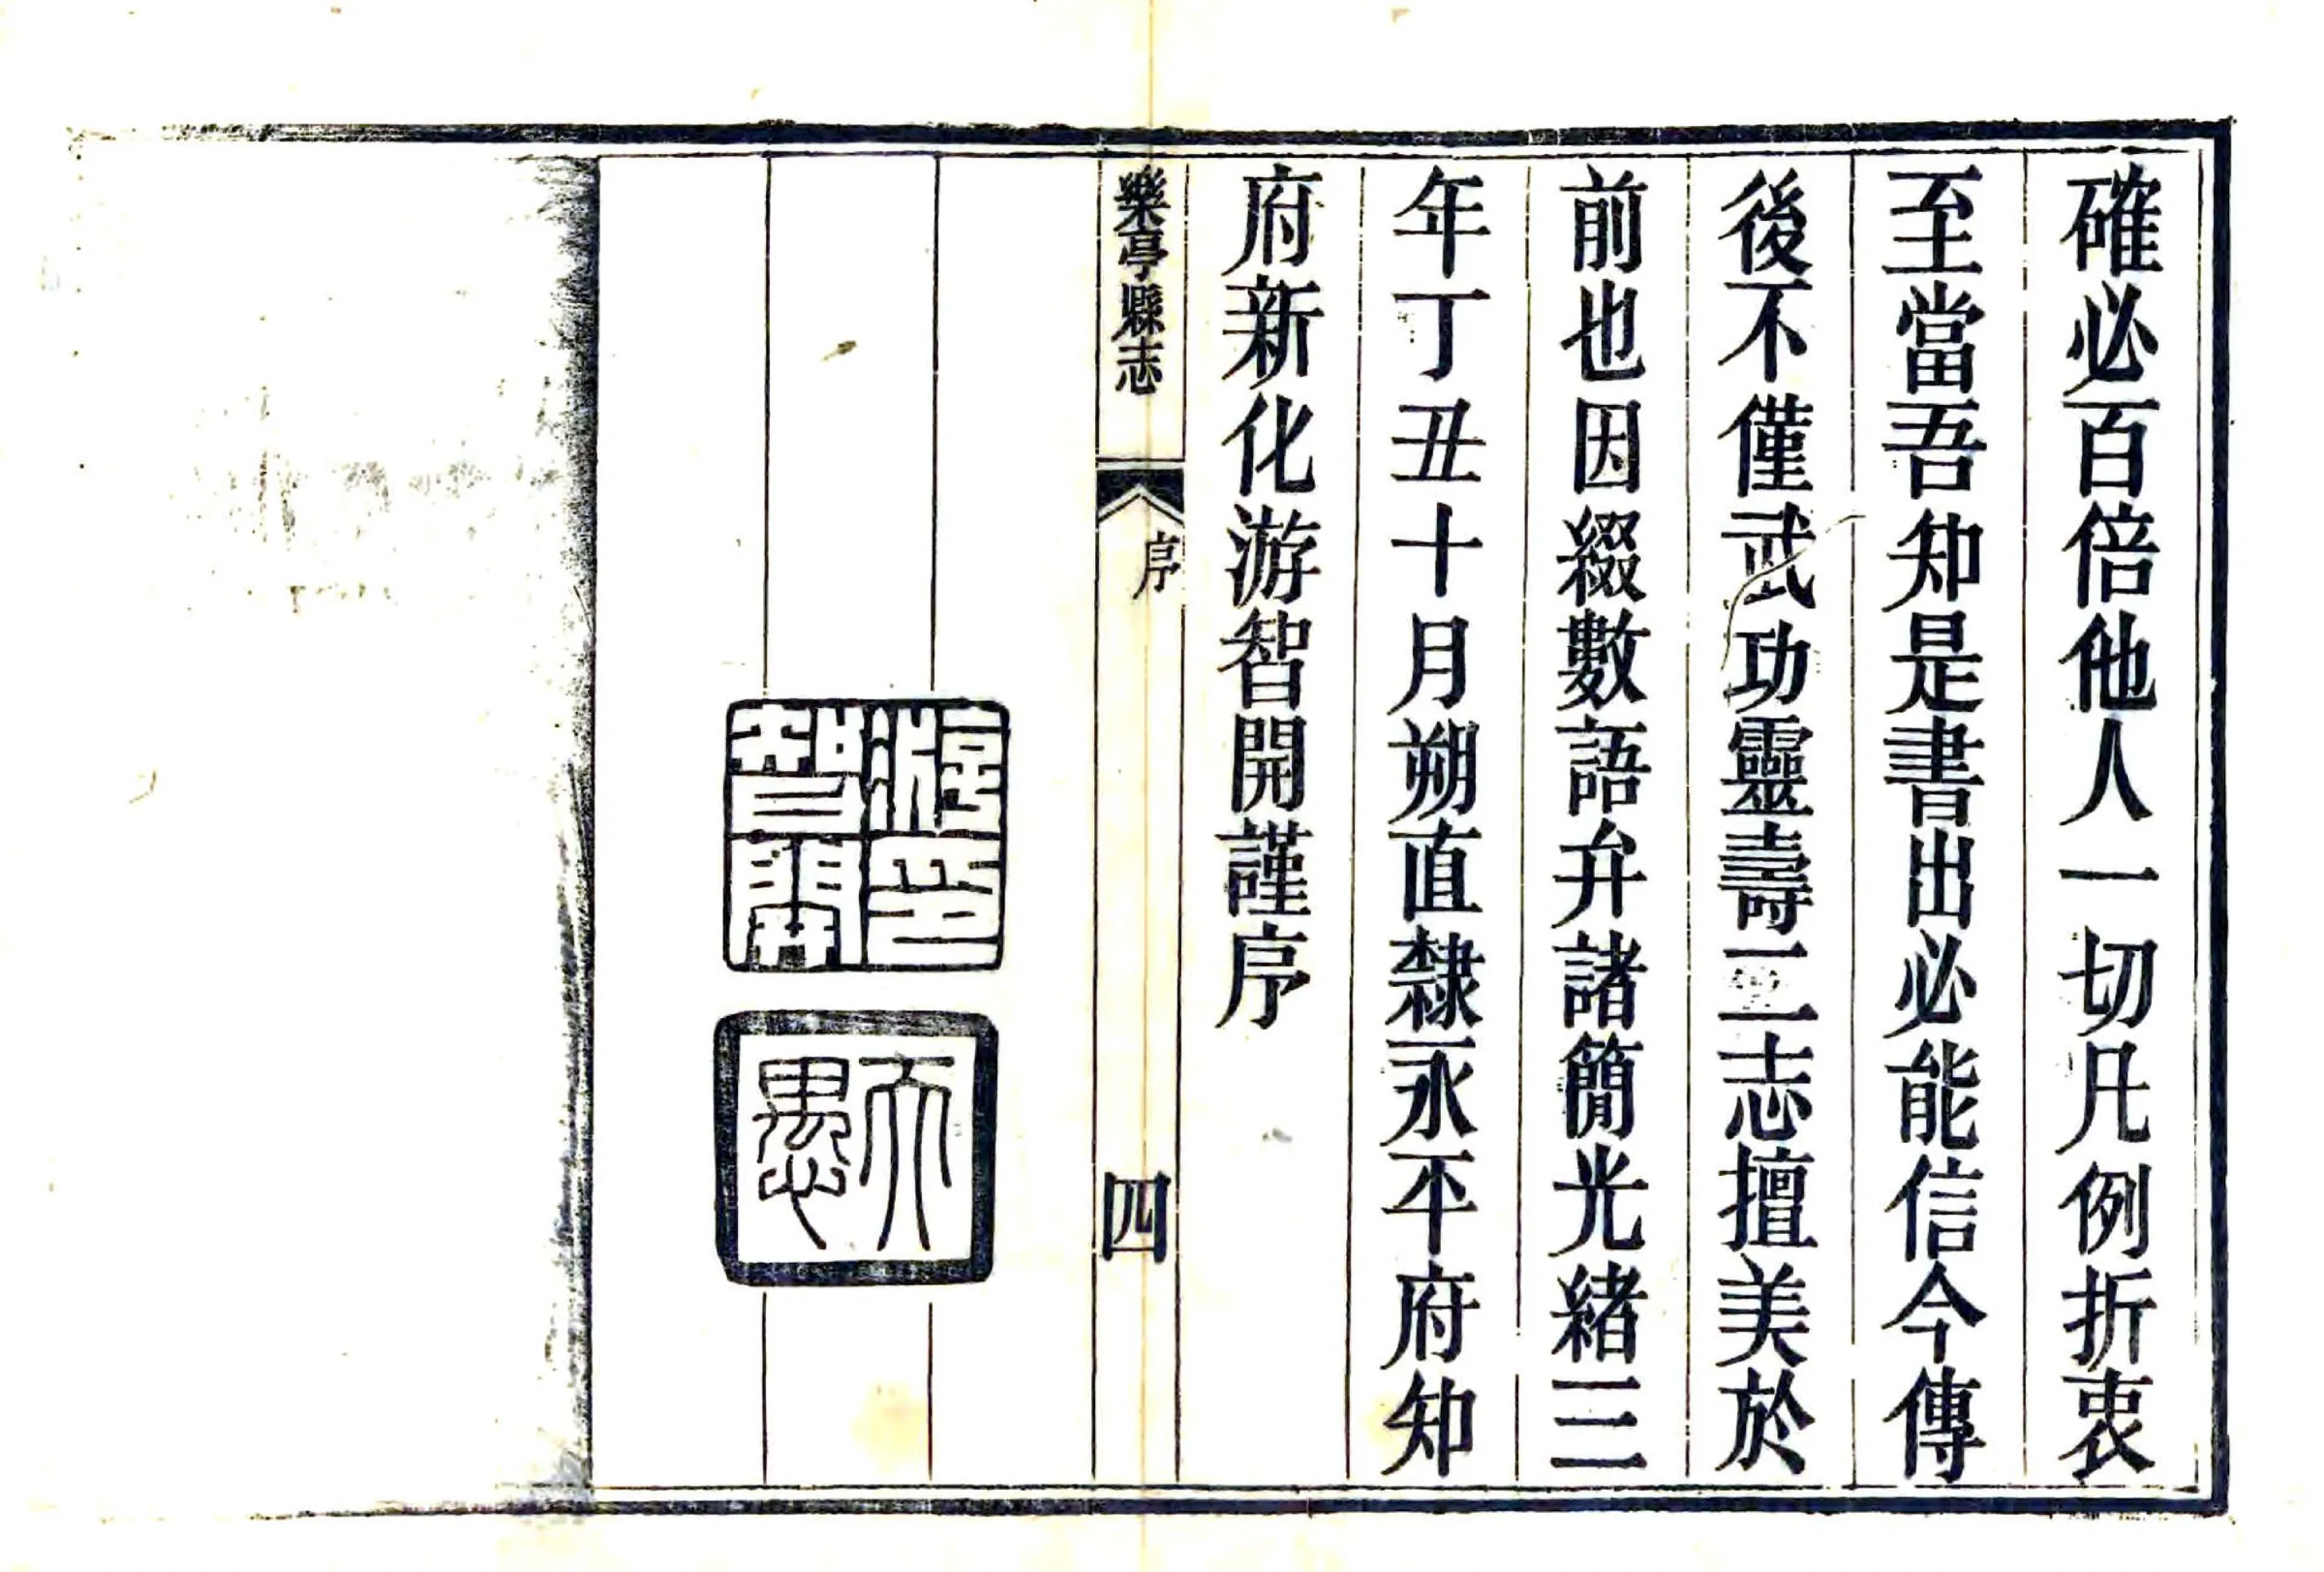 確必百倍他人一切凡例折衷
至當吾知是書出必能信今傳
後不僅武功靈壽二志擅美於
前也因綴數語弁諸簡光緒三
年丁丑十月朔直隸永平府知
府新化游智開謹序
樂亭縣志
序
四
游印
智開
天愚